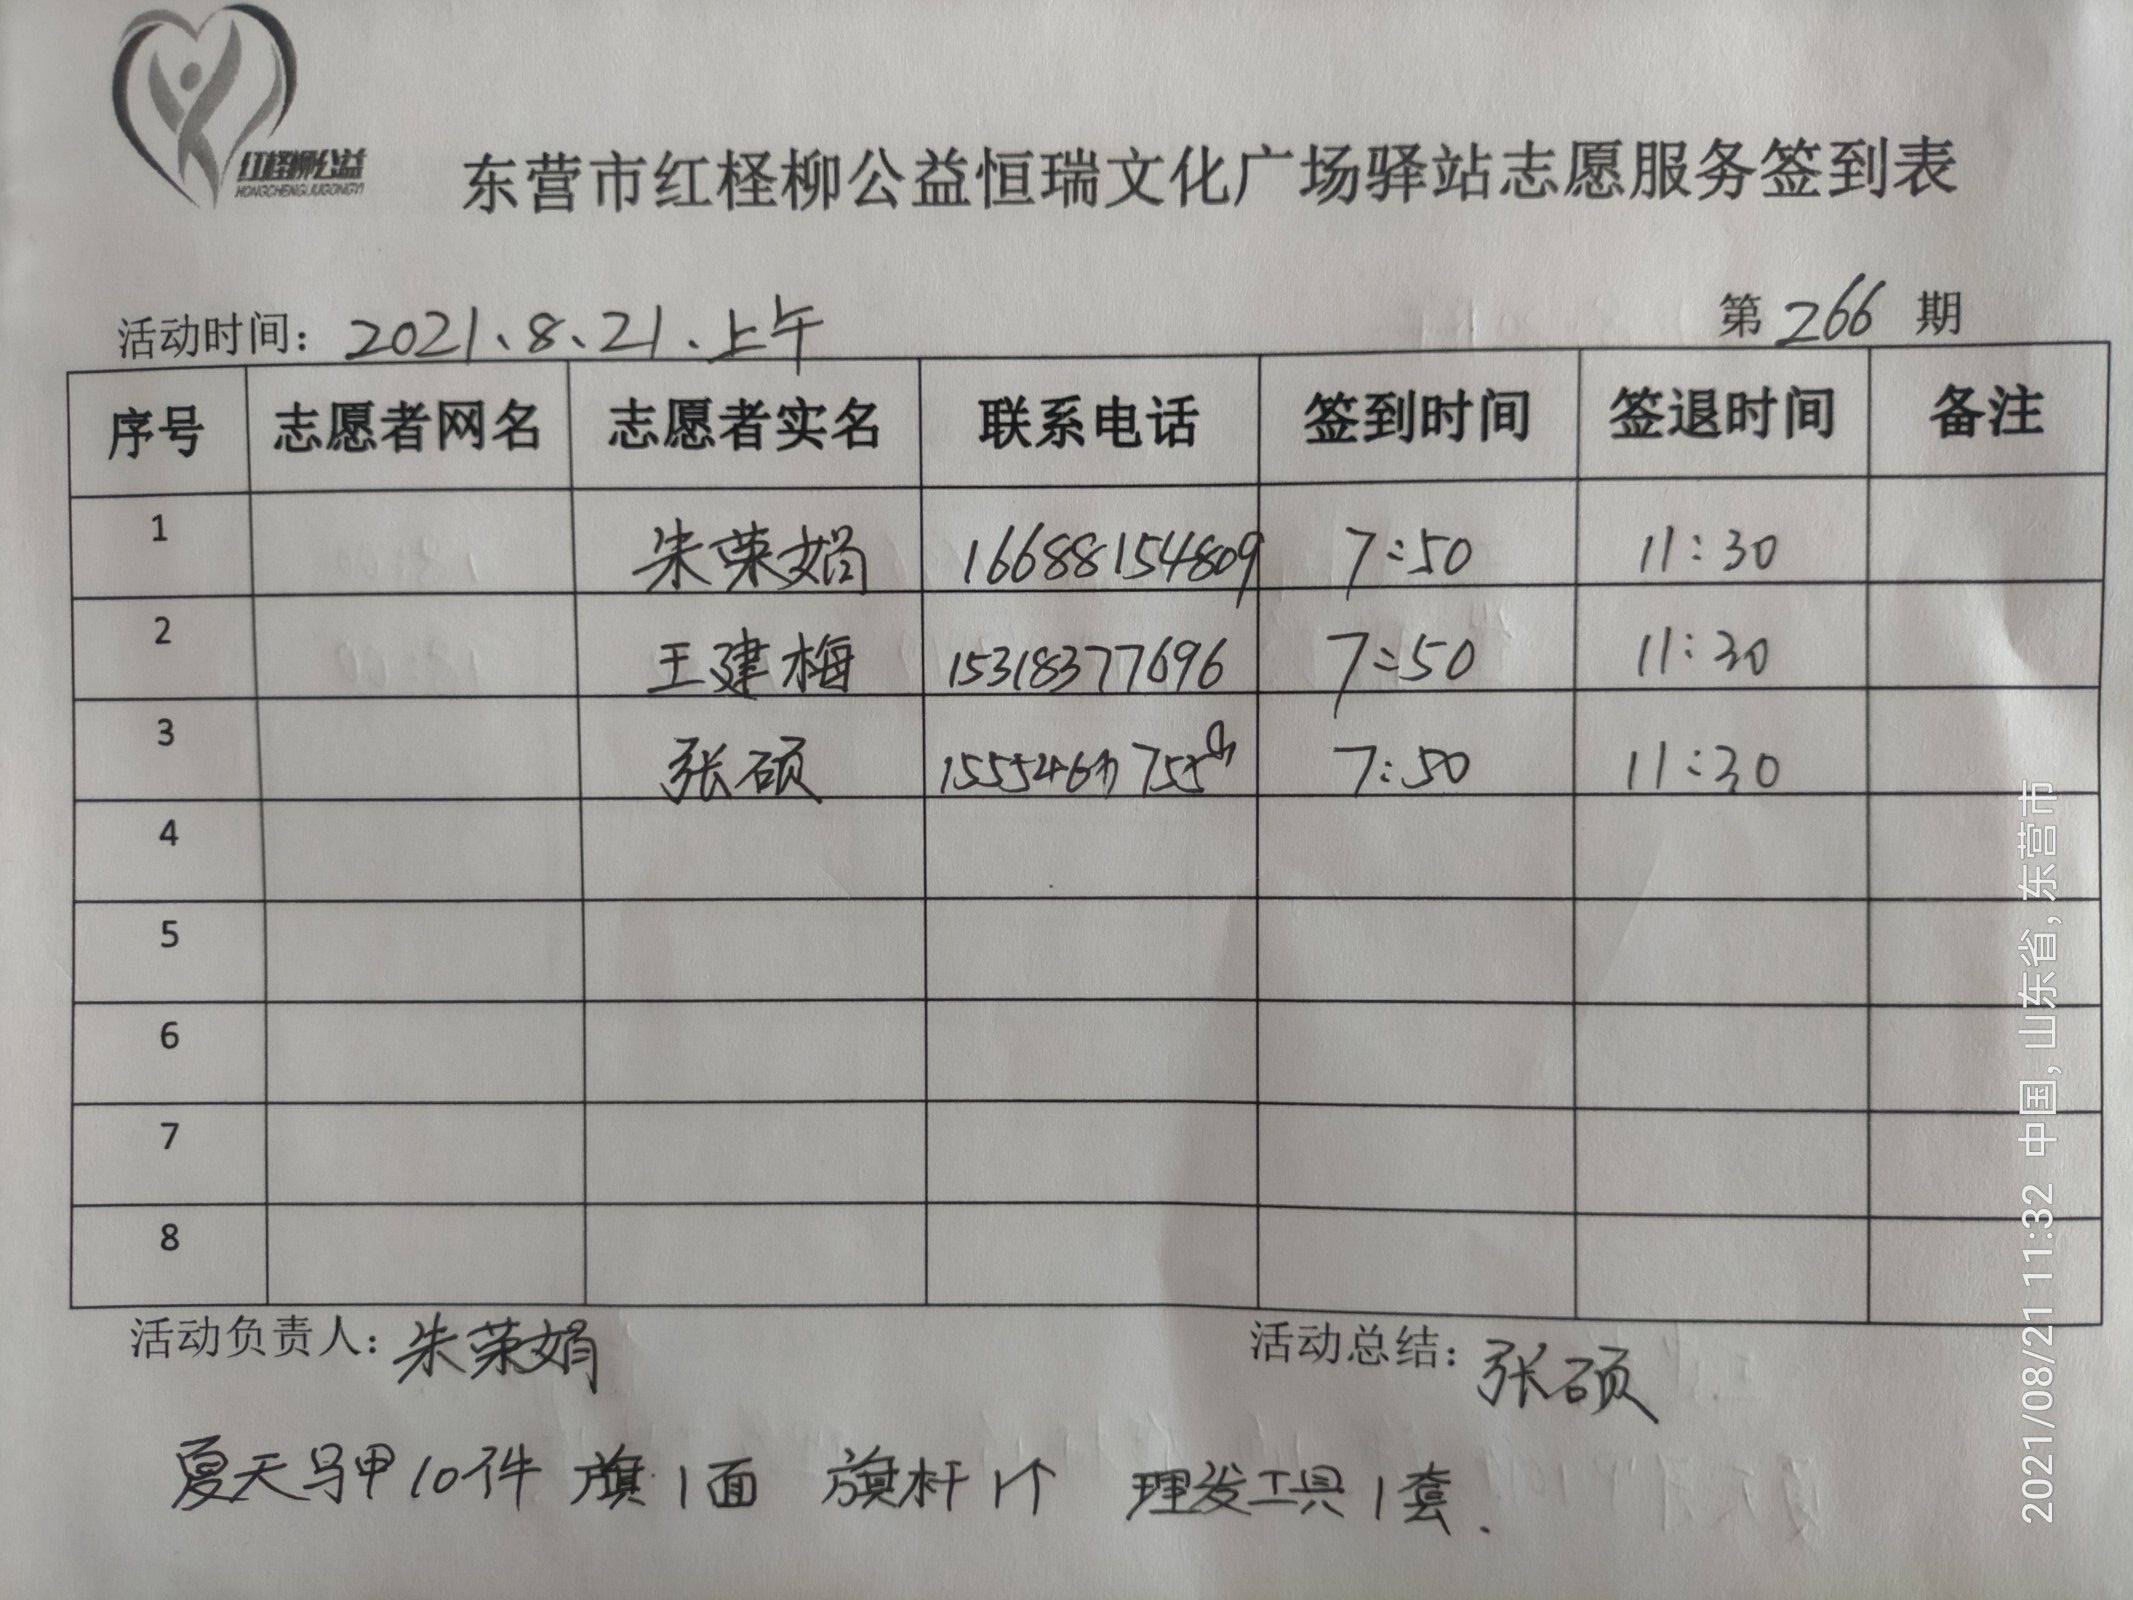 红柽柳公益
HONGCHENGLIUGONGYI
东营市红柽柳公益恒瑞文化广场驿站志愿服务签到表
活动时间：2021、8、21、上午 第 266 期
序号 志愿者网名 志愿者实名 联系电话 签到时间 签退时间 备注
1 朱荣娟 16688154809 7:50 11:30
2 王建梅 15318377696 7:50 11:30
3 张硕 7:50 11:30
4
5
6
7
8
活动负责人：朱荣娟 活动总结：张硕
夏天马甲10件 旗1面 旗杆1个 理发工具1套.
2021/08/21 11:32 中国,山东省,东营市